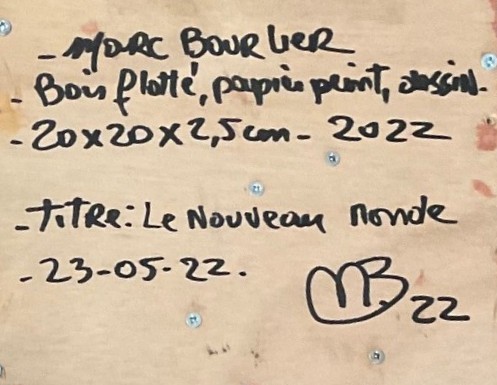 - MARC BOURLIER
- Bois flotté, papier peint, dessin.
- 20x20x2,5 cm - 2022
- TITRE: Le Nouveau Monde
- 23-05-22.
MB 22